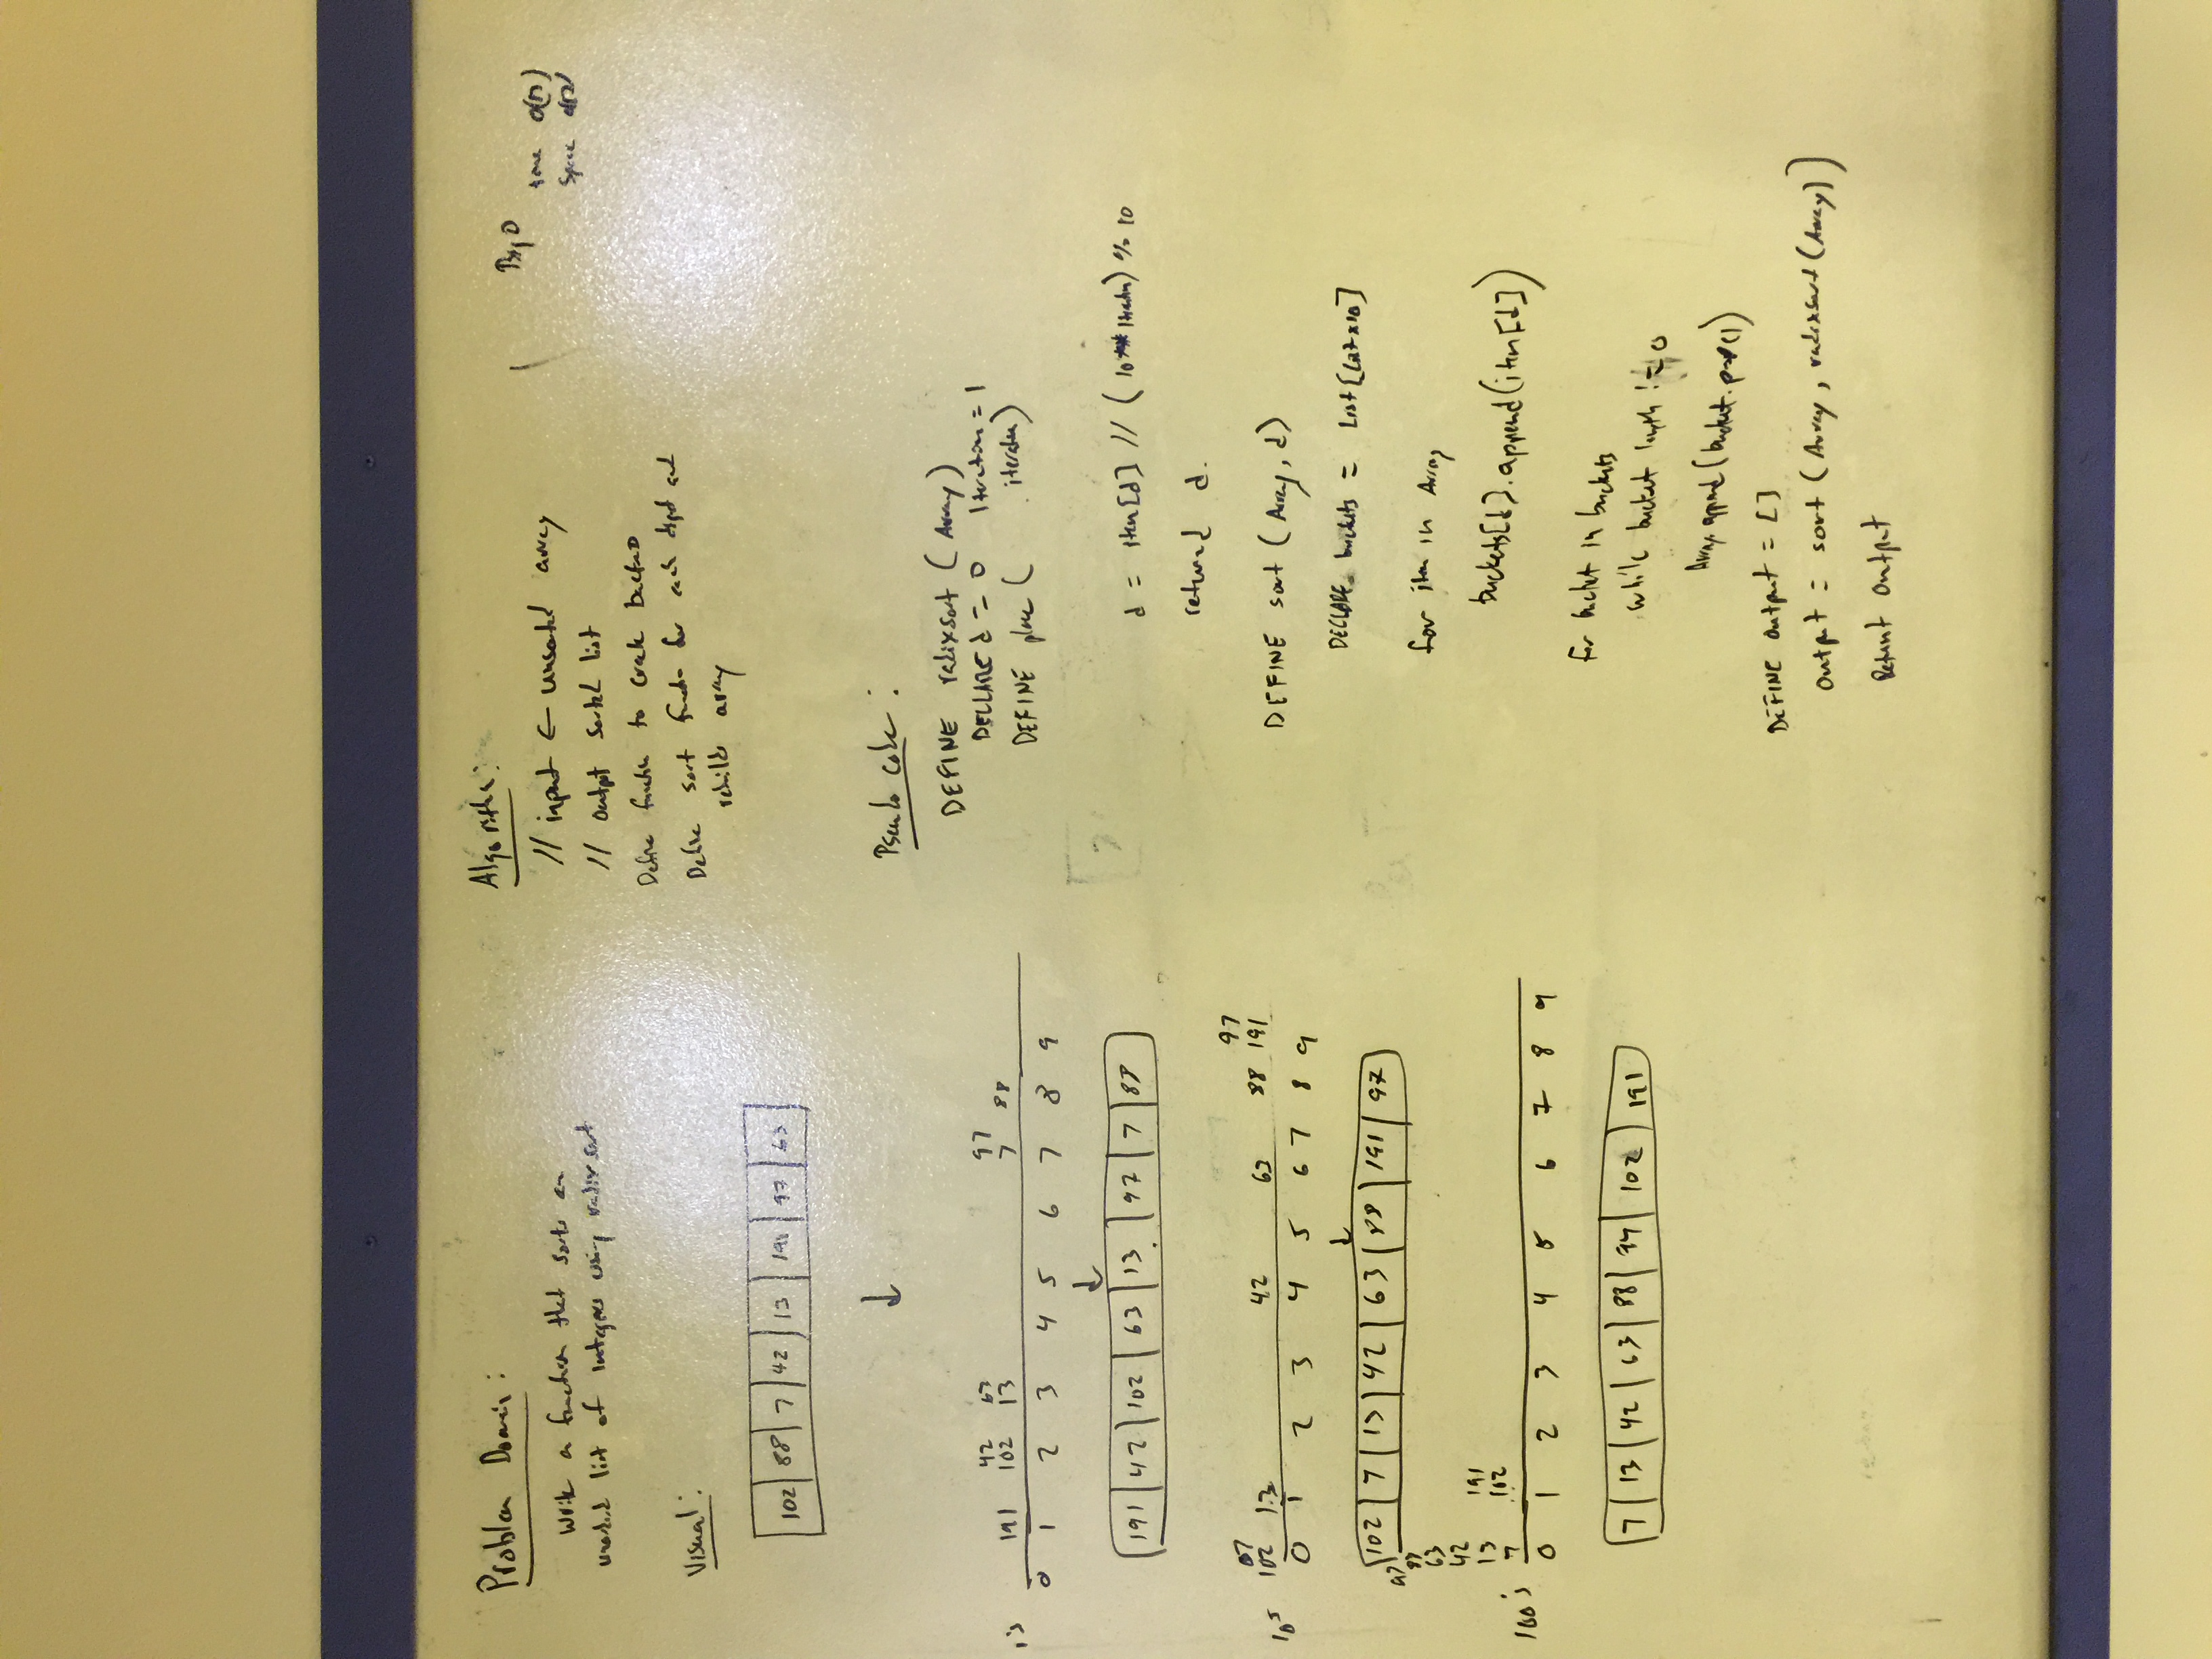 Problem Domain:
Write a function that sorts an
unsorted list of integers using radix sort
Visual:
102 88 7 42 13 191 97 63
42 63 97
1's 191 102 13 7 88
0 1 2 3 4 5 6 7 8 9
191 42 102 63 13 97 7 88
07 97
10s 102 13 42 63 88 191
0 1 2 3 4 5 6 7 8 9
102 7 13 42 63 88 191 97
97
88
63
42
13 191
100s 7 102
0 1 2 3 4 5 6 7 8 9
7 13 42 63 88 97 102 191
Algorithm:
// input ← unsorted array
// output sorted list
Define function to create buckets
Define sort function for each digit and
rebuilds array
Big O
time O(n)
Space
Pseudo code:
DEFINE radixsort (Array)
DECLARE d = 0 Iteration = 1
DEFINE place ( iteration)
d = item[d] // (10** Iteration) % 10
returned d.
DEFINE sort (Array, d)
DECLARE buckets = List[List x 10]
for item in Array
buckets[d].append(item[d])
for bucket in buckets
while bucket length != 0
Array.append(bucket.pop())
DEFINE output = []
Output = sort (Array, radixsort (Array))
Return Output